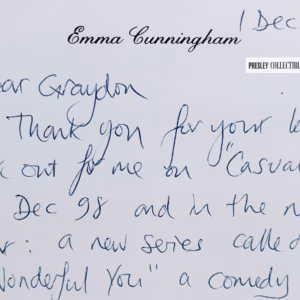 1 Dec
Emma Cunningham
PRESLEY COLLECTIBL
ear Graydon
Thank you for your le
k out for me on "Casua
Dec 98 and in the n
r: a new series called
Wonderful You" a comedy